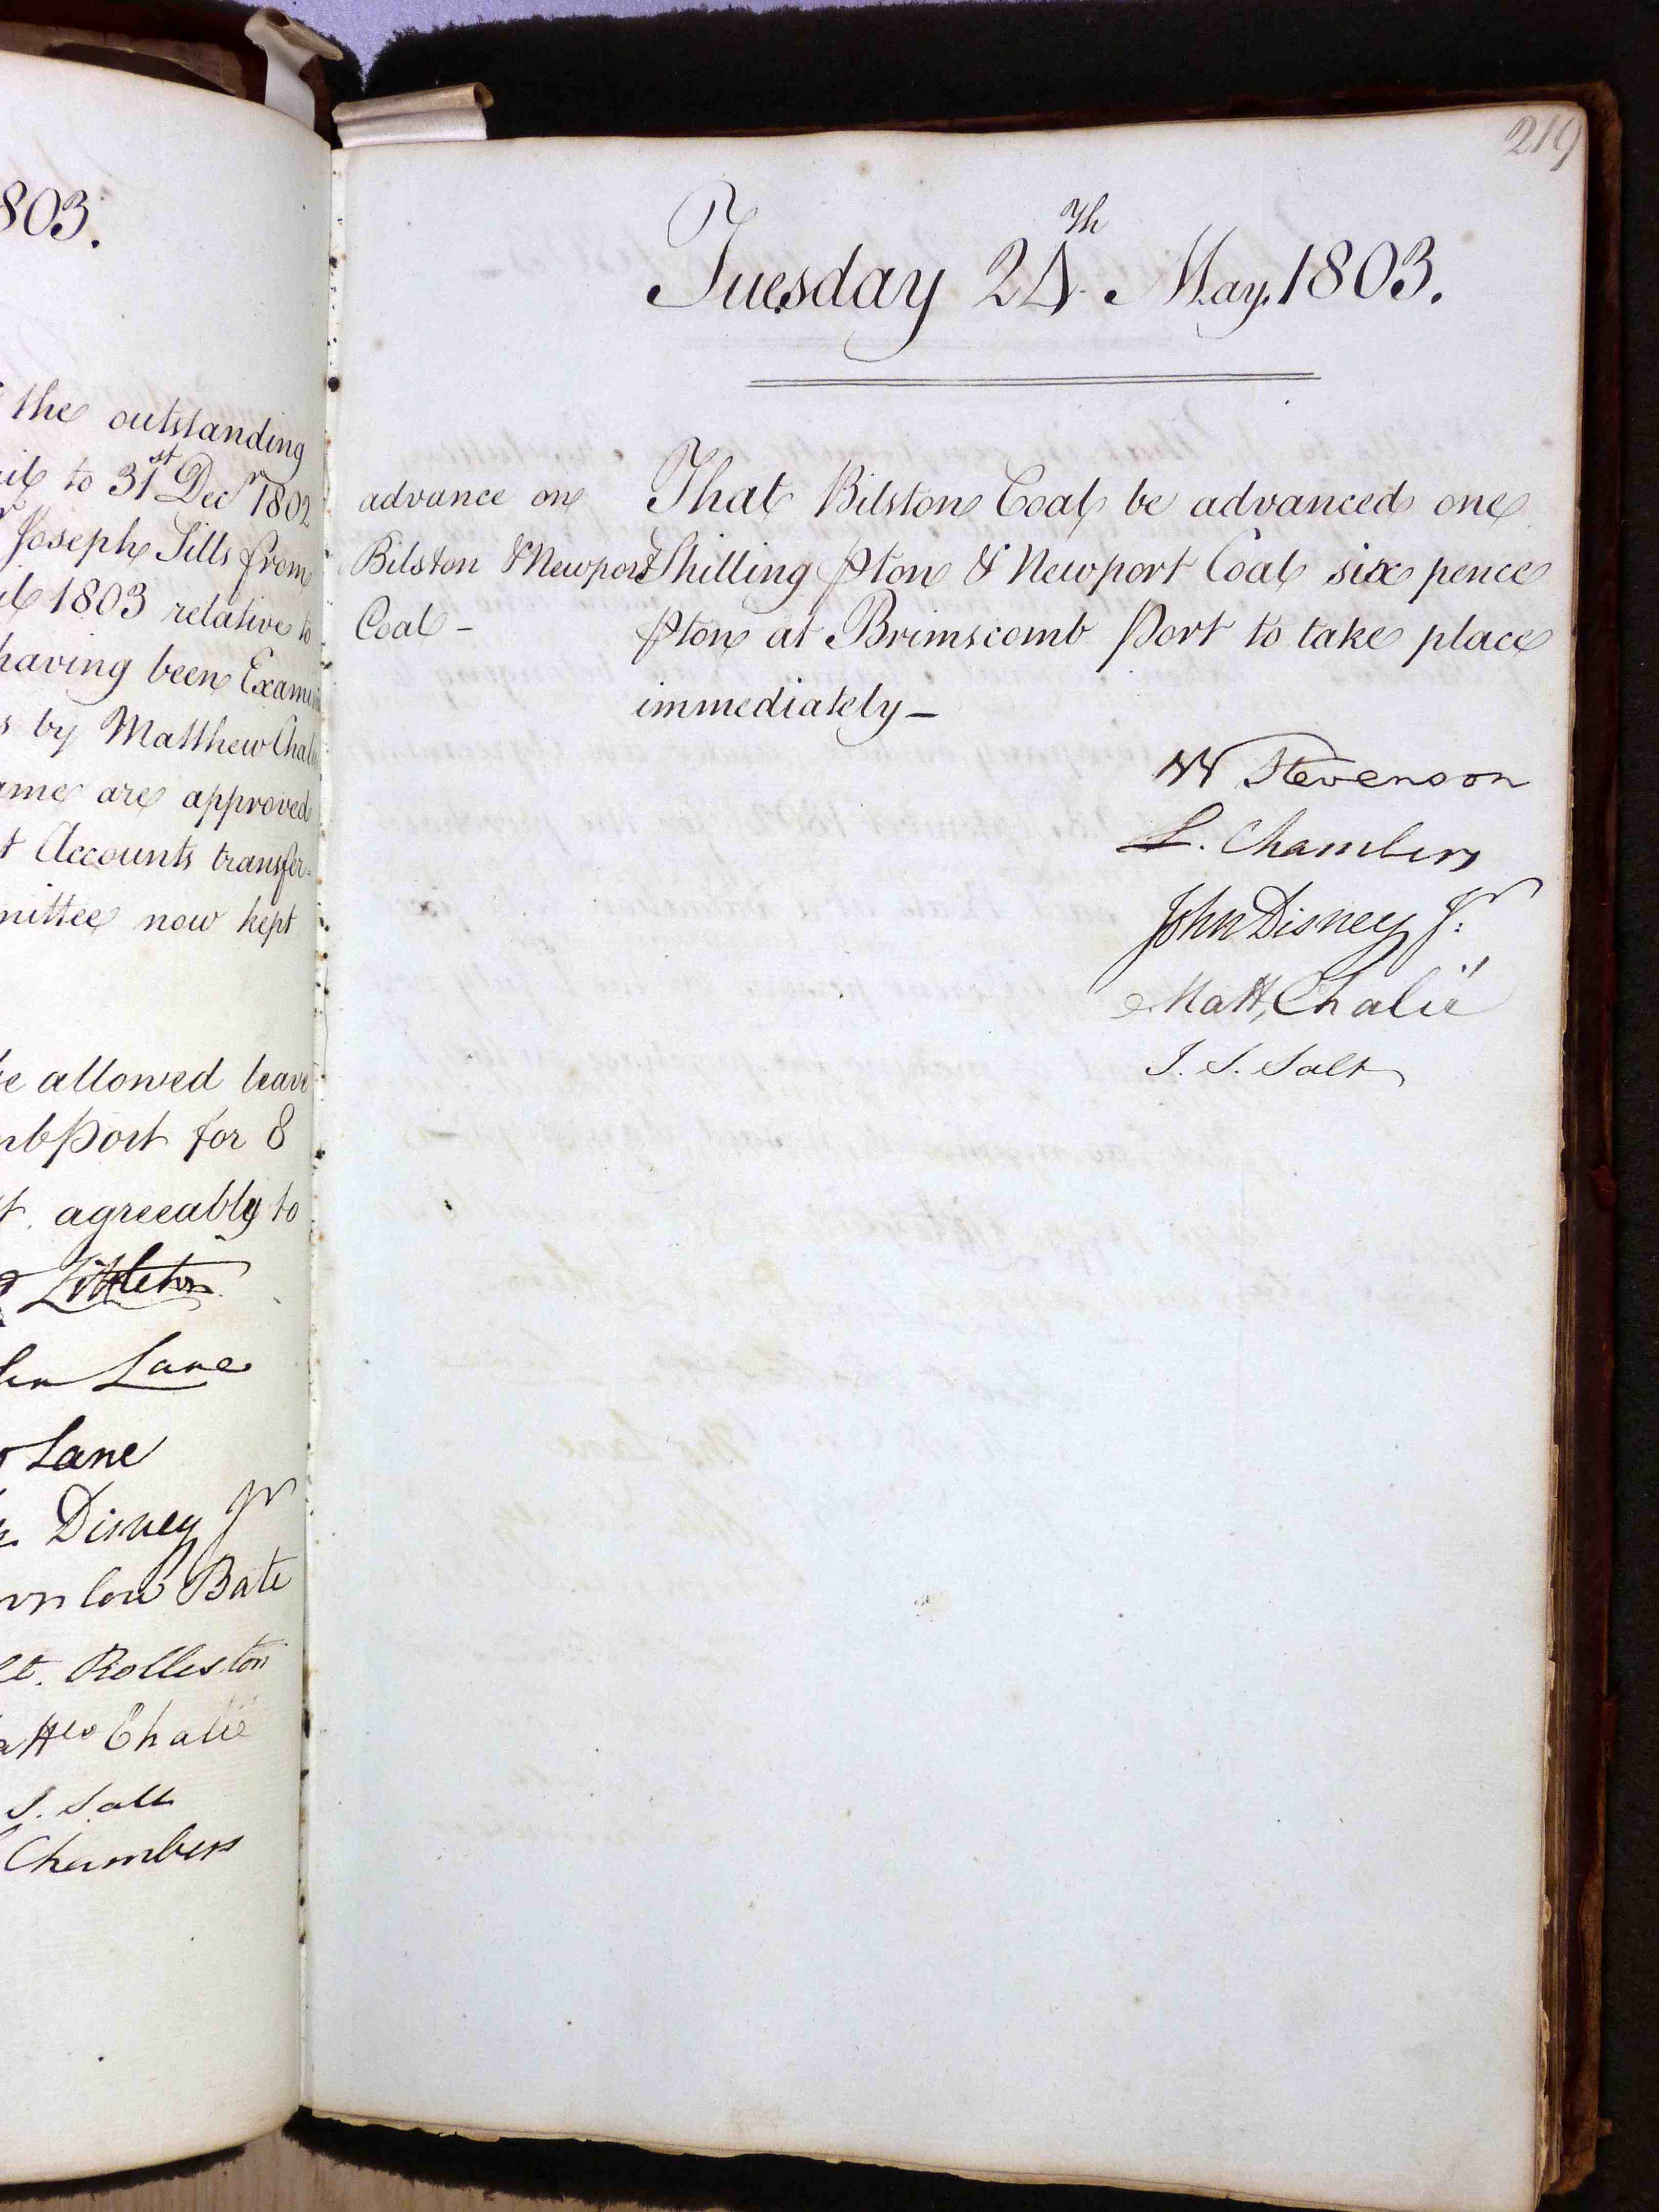 803.
the outstanding
to 31st Decr 1802
Joseph Sills from
1803 relative to
having been
by Matthew
are approved
Accounts transfer-
now kept
allowed leave
Port for 8
agreeably to
Littleton
Lane
Lane
Disney Jr
Bate
Rolleston
Chalié
S. Salt
Chambers
219
Tuesday 24th May, 1803.
advance on
Bilston & Newport
Coal -
That Bilston Coal be advanced one
Shilling ⅌ ton & Newport Coal six pence
⅌ ton at Brimscomb Port to take place
immediately -
W Stevenson
L. Chambers
John Disney Jr:
Matt, Chalié
J. S. Salt